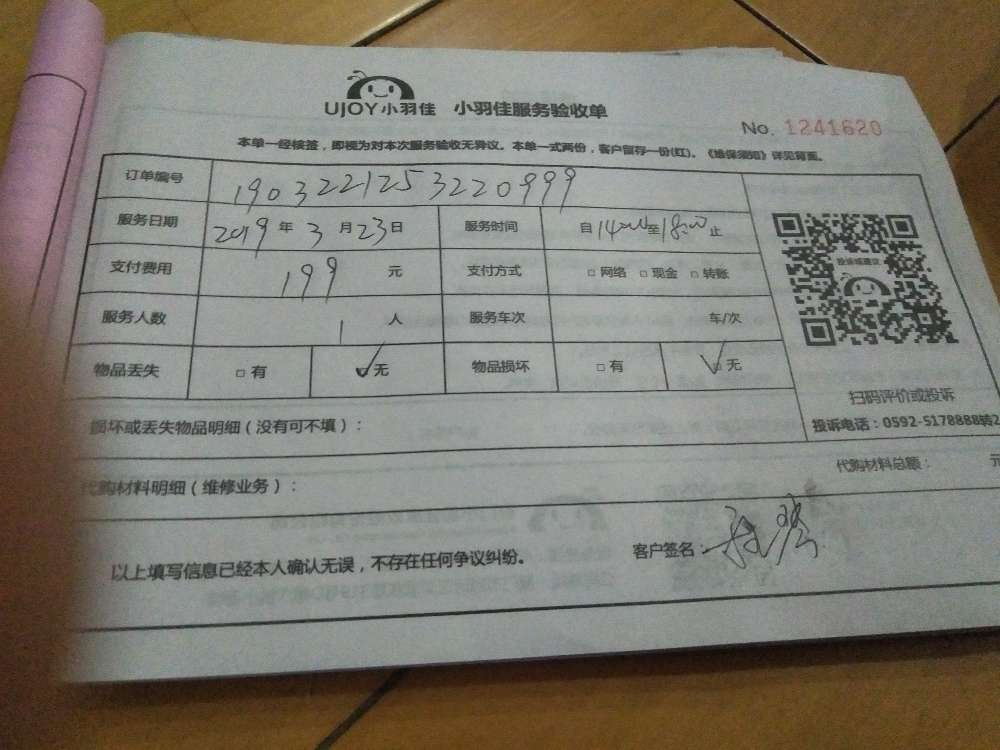 UJOY小羽佳 小羽佳服务验收单
No. 1241620
本单一经核签,即视为对本次服务验收无异议。本单一式两份,客户留存一份(红)。《维保须知》详见背面。
订单编号 1903221253220999
服务日期 2019年3月23日 服务时间 自14:00至18:00止
支付费用 199元 支付方式 □网络 □现金 □转账
服务人数 1人 服务车次 车/次
物品丢失 □有 ✓无 物品损坏 □有 ✓无
投诉或建议
扫码评价或投诉
投诉电话:0592-5178888转2
损坏或丢失物品明细(没有可不填):
代购材料明细(维修业务): 代购材料总额: 元
以上填写信息已经本人确认无误,不存在任何争议纠纷。 客户签名: